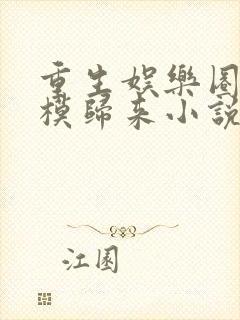 重生娛樂圈
模歸來小說
江園